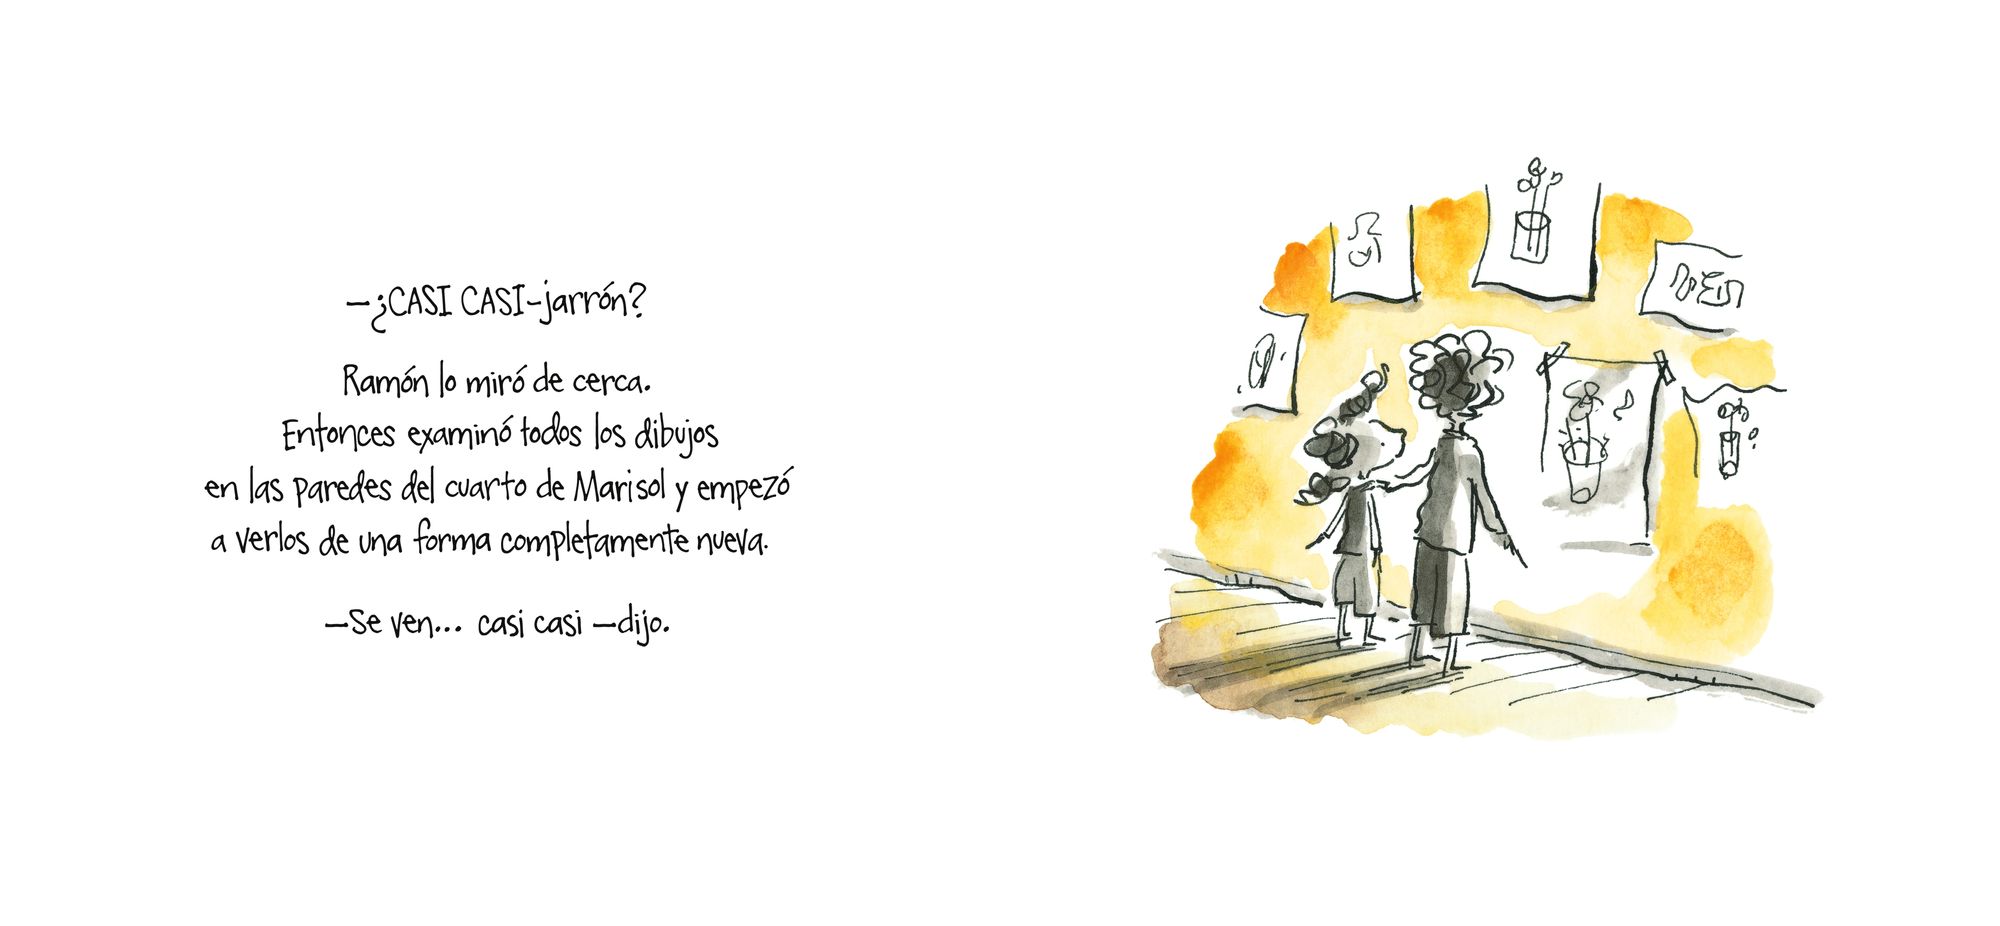 —¿CASI CASI-jarrón?
Ramón lo miró de cerca.
Entonces examinó todos los dibujos
en las paredes del cuarto de Marisol y empezó
a verlos de una forma completamente nueva.
—Se ven... casi casi —dijo.